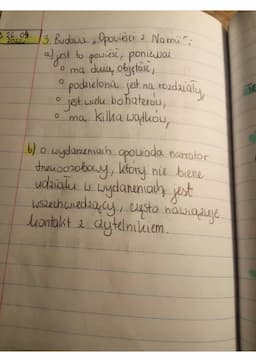 26.09
3. Budowa "Opowieści z Narnii":
a) jest to powieść, ponieważ
° ma dużą objętość,
° podzielona jest na rozdziały,
° jest wielu bohaterów,
° ma kilka wątków,
b) o wydarzeniach opowiada narrator
trzecioosobowy, który nie bierze
udziału w wydarzeniach, jest
wszechwiedzący, często nawiązuje
kontakt z czytelnikiem.